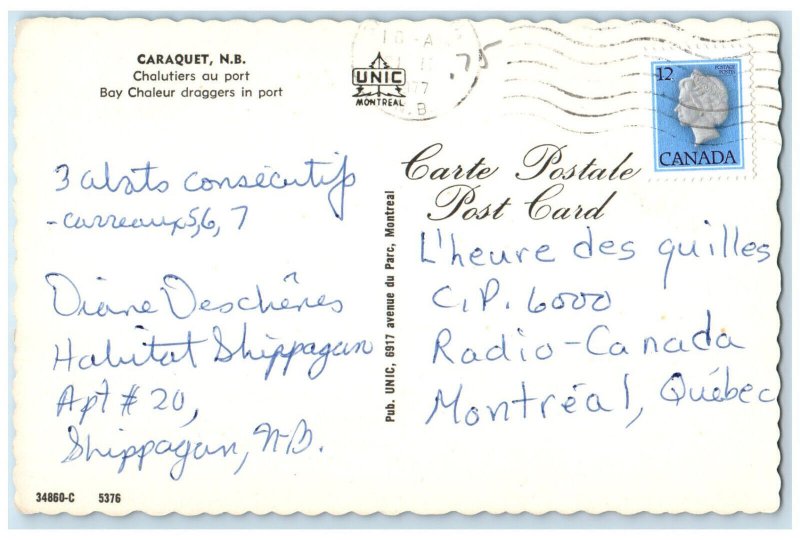 CARAQUET, N.B.
Chalutiers au port
Bay Chaleur draggers in port
UNIC
MONTREAL
77
.75
12
POSTAGE
POSTES
CANADA
Carte Postale
Post Card
3 abats consécutifs
- carreaux 5, 6, 7
Diane Deschênes
Habitat Shippagan
Apt # 20,
Shippagan, N.B.
Pub. UNIC, 6917 avenue du Parc, Montreal
L'heure des quilles
C.P. 6000
Radio-Canada
Montréal, Québec
34860-C 5376